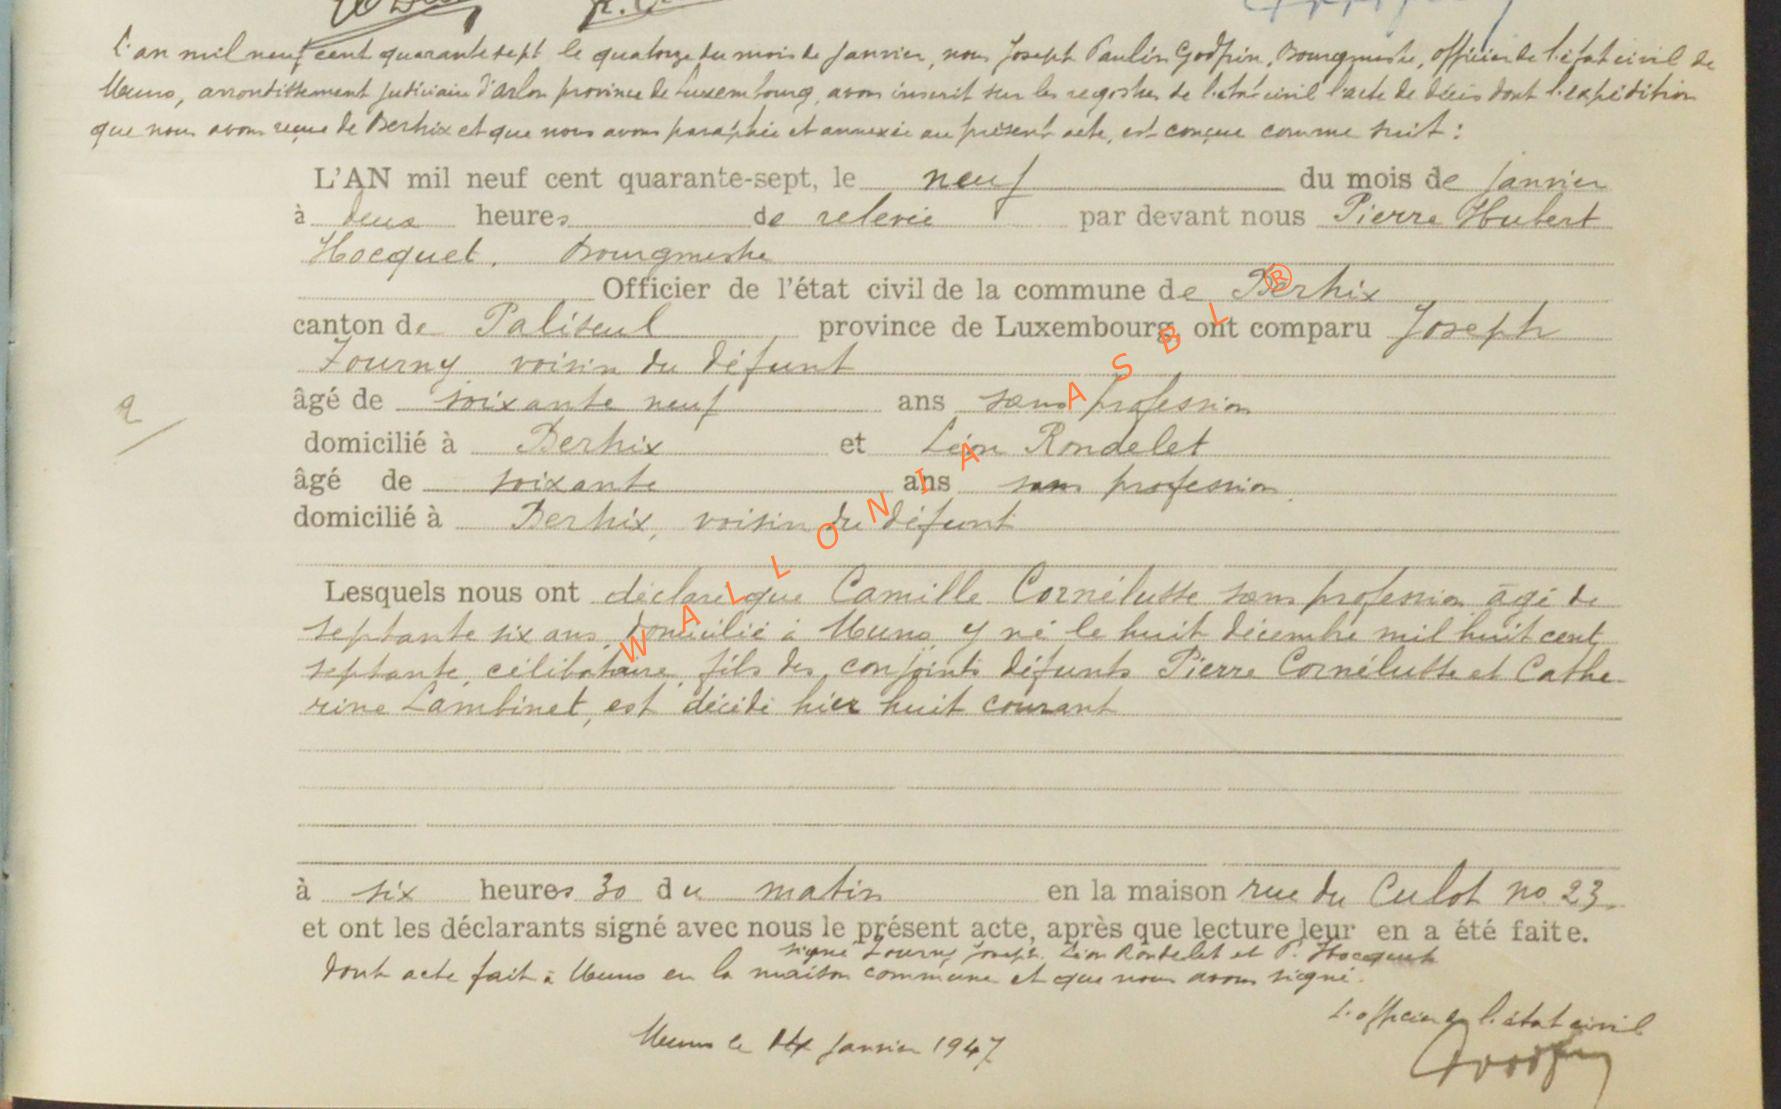 L'an mil neuf cent quarante sept le quatorze du mois de Janvier, nous Joseph Paulin Godfrin, Bourgmestre, officier de l'état civil de
Muno, arrondissement judiciaire d'Arlon province de Luxembourg, avons inscrit sur les registres de l'état civil l'acte de décès dont l'expédition
que nous avons reçue de Bertrix et que nous avons paraphée et annexée au présent acte, est conçue comme suit :
L'AN mil neuf cent quarante-sept, le neuf du mois de Janvier
à deux heures de relevée par devant nous Pierre Hubert
Hocquet, Bourgmestre
Officier de l'état civil de la commune de Bertrix
canton de Paliseul province de Luxembourg, ont comparu Joseph
Fourny voisin du défunt
âgé de soixante neuf ans sans profession
2
domicilié à Bertrix et Léon Rondelet
âgé de soixante ans sans profession
domicilié à Bertrix, voisin du défunt
Lesquels nous ont déclaré que Camille Cornélusse sans profession âgé de
septante six ans, domicilié à Muno y né le huit décembre mil huit cent
septante, célibataire, fils des conjoints défunts Pierre Cornélusse et Cathe-
rine Lambinet, est décédé hier huit courant
à six heures 30 du matin en la maison rue du Culot no 23.
et ont les déclarants signé avec nous le présent acte, après que lecture leur en a été faite.
signé Fourny Joseph. Léon Rondelet et P. Hocquet
Dont acte fait à Muno en la maison commune et que nous avons signé.
L'officier de l'état civil
Muno le Janvier 1947
Godfrin
WALLONIA ASBL ®